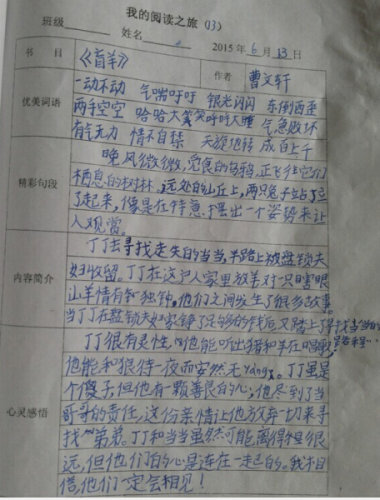 我的阅读之旅（13）
班级 姓名 2015年6月13日
书目 《盲羊》 作者 曹文轩
优美词语
一动不动 气喘吁吁 银光闪闪 东倒西歪
两手空空 哈哈大笑 呼呼大睡 气急败坏
有气无力 情不自禁 天旋地转 成百上千
精彩句段
晚风微微，觅食的乌鸦，正飞往它们
栖息的树林。远处的山丘上，两只兔子站了
起来，像是在特意摆出一个姿势来让
人观赏。
内容简介
丁丁去寻找走失的当当，半路上被盘锁夫
妇收留。丁丁在这户人家里放羊对一只瞎眼
山羊情有独钟。他们之间发生了很多故事。
当丁丁在盘锁夫妇家挣了足够的钱后又踏上了寻找当当的
路程…
心灵感悟
丁丁很有灵性，他能听出猪和羊在唱歌，
他能和狼待一夜而安然无yang。丁丁虽是
个傻子，但他有一颗善良的心，他尽到了当
哥哥的责任，这份亲情让他放弃一切来寻
找弟弟。丁丁和当当虽然可能离得很
远，但他们的心是连在一起的。我相
信他们一定会相见！